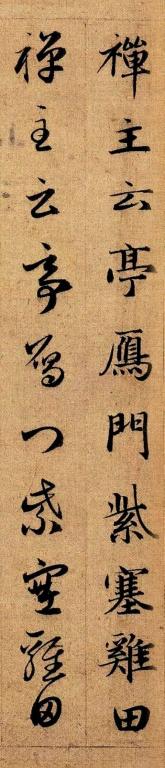 禪主云亭鴈門紫塞雞田
禪主云亭雁門紫塞雞田